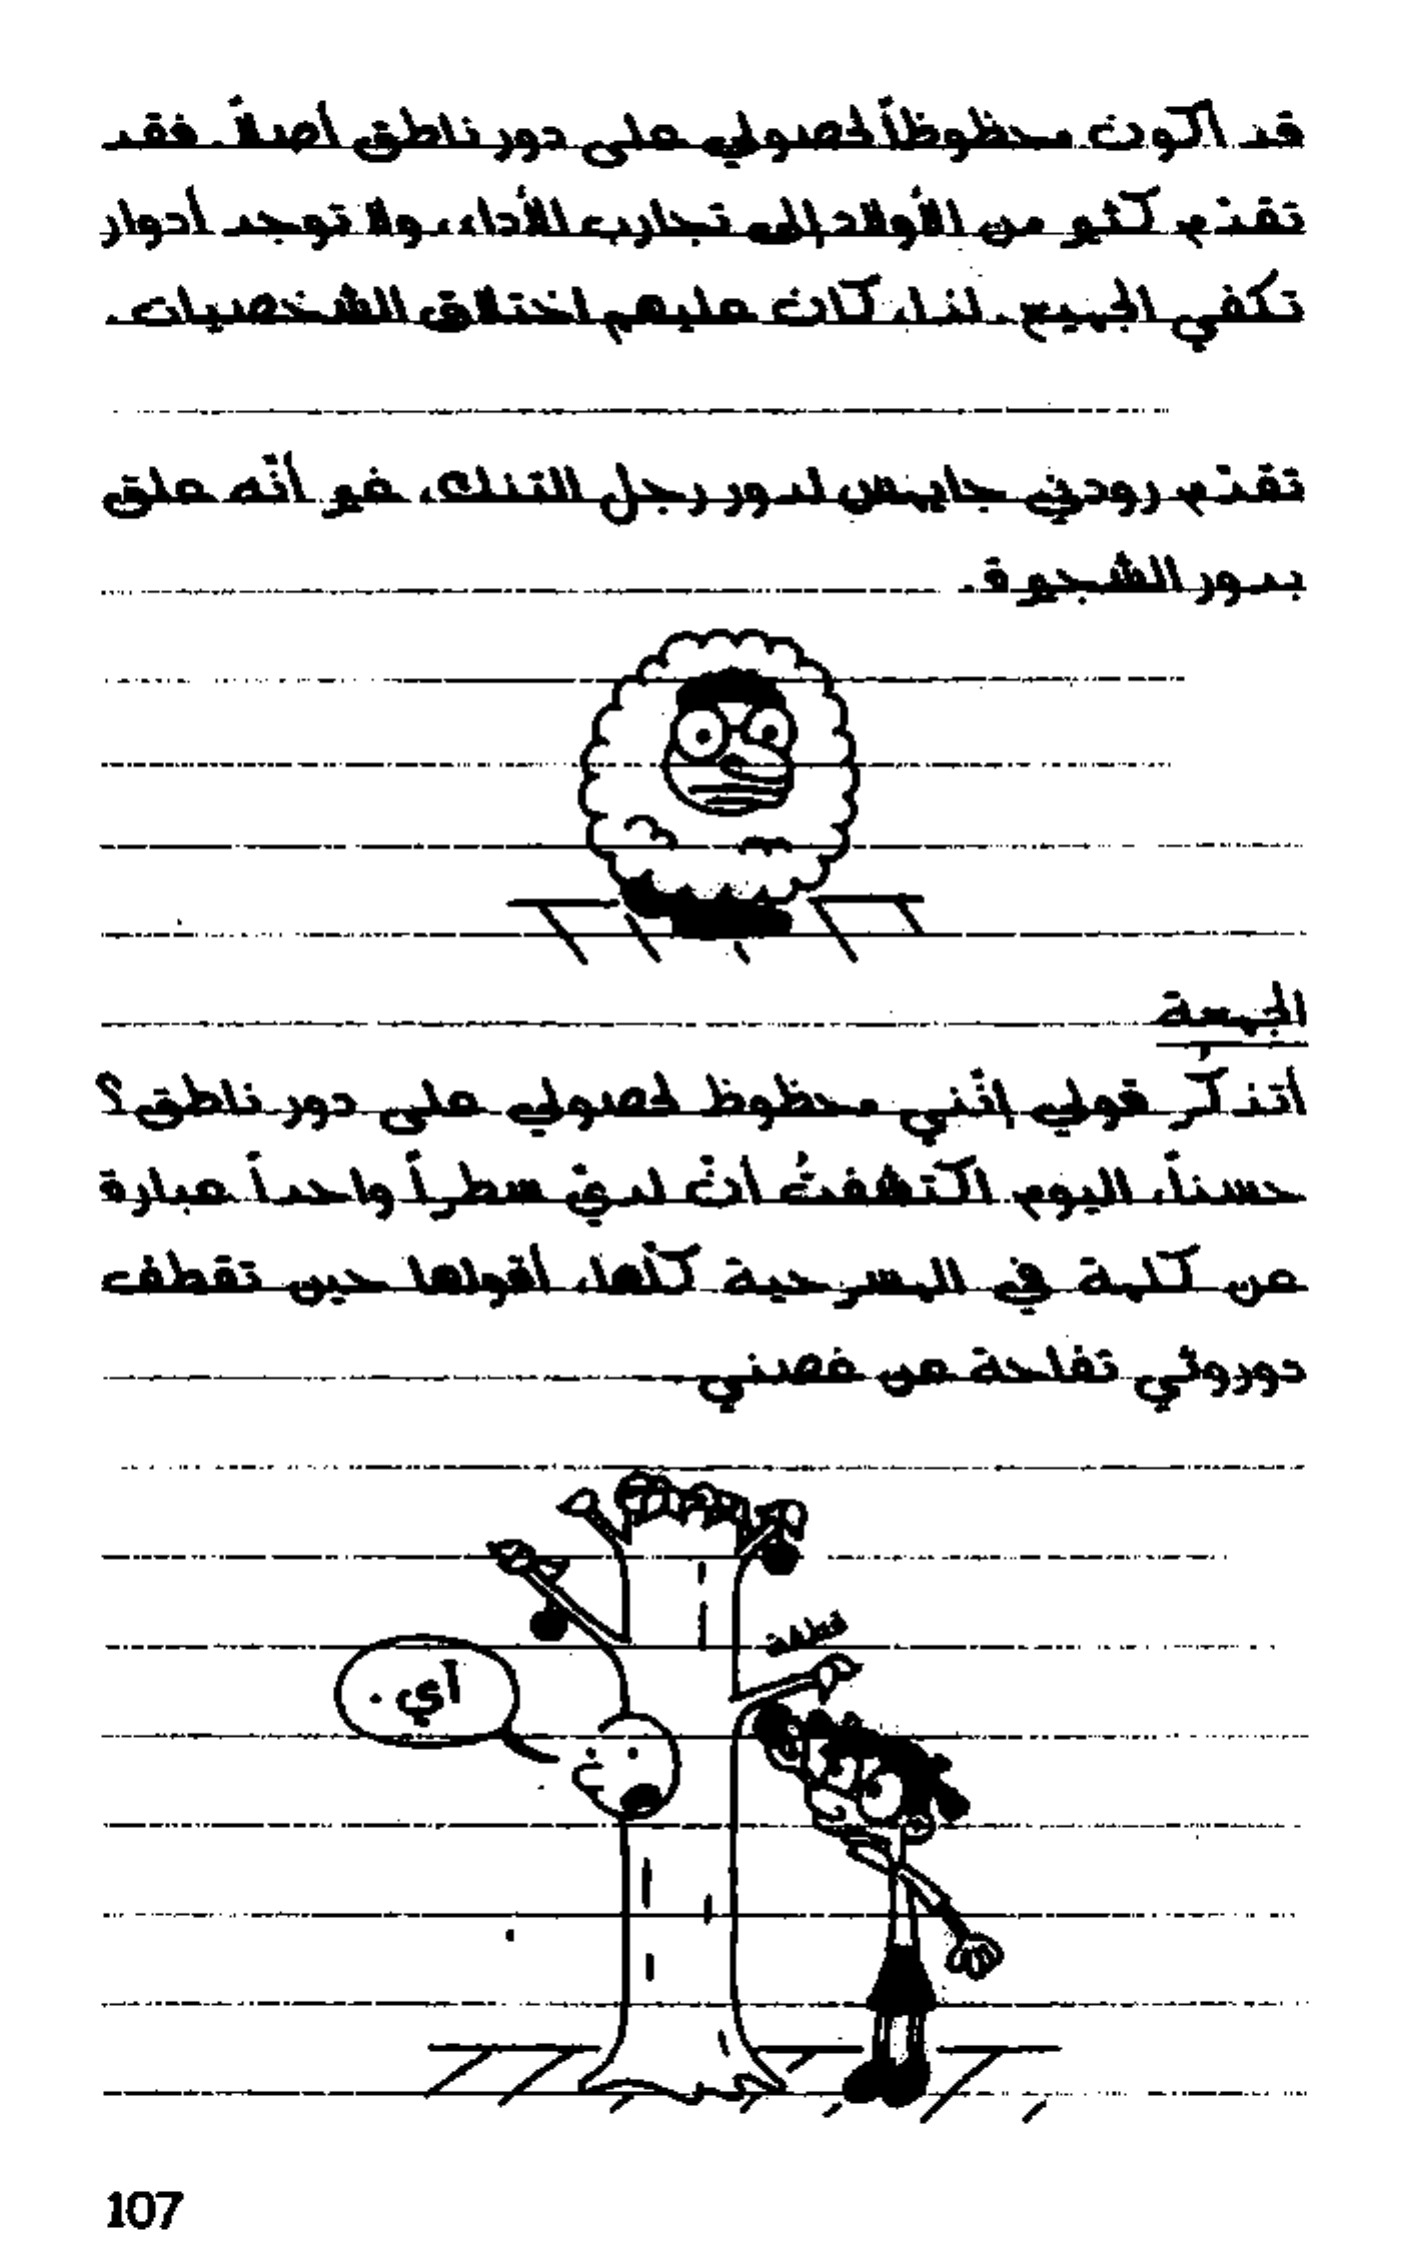 قد أكون محظوظاً لحصولي على دور ناطق أصلاً. فقد
تقدّم كثير من الأولاد إلى تجارب الأداء، ولا توجد أدوار
تكفي الجميع. لذا، كان عليهم اختلاق الشخصيات.
تقدّم رودني جايمس لدور رجل التنك، غير أنّه علق
بدور الشجيرة.
الجمعة
أتذكُر قولي إنّني محظوظ لحصولي على دور ناطق؟
حسناً، اليوم اكتشفتُ أنّ لديّ سطراً واحداً عبارة
عن كلمة في المسرحية كلّها، أقولها حين تقطف
دوروثي تفاحة عن غصني
قطفة
آي.
107